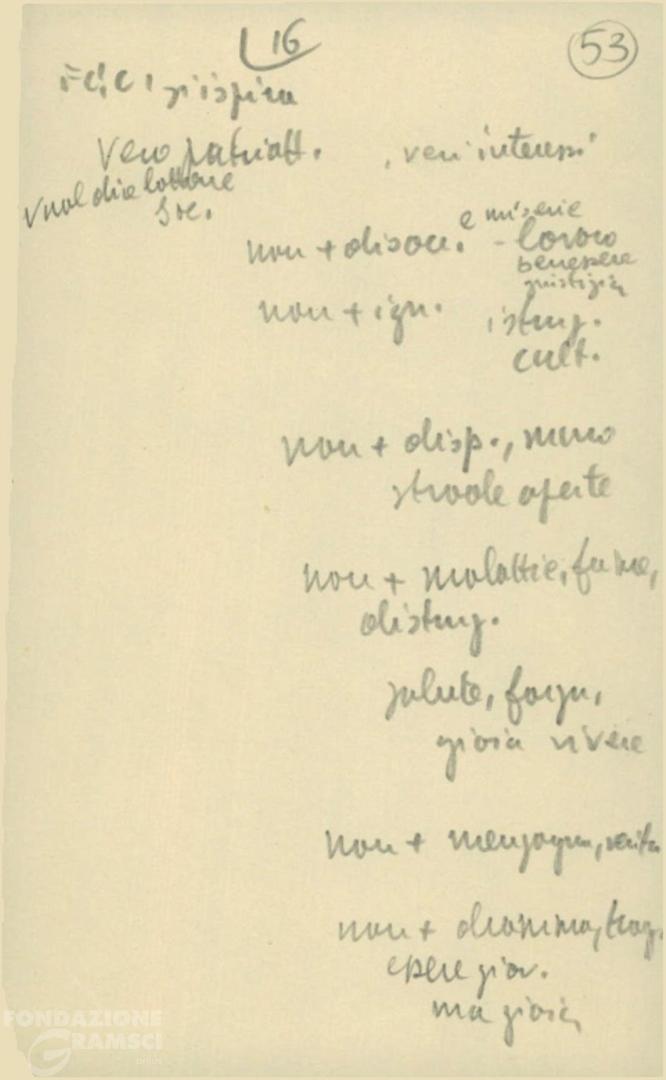 16
53
F.G.C.I. si ispira
Vero patriott. , veri interessi
vuol dire lottare
soc.
non + disocc. e miserie - lavoro
benessere
giustizia
non + ign. istruz.
cult.
non + disp., meno
strade aperte
non + malattie, fame,
distruz.
salute, forza,
gioia vivere
non + menzogna, verità
non + dramma, trag.
essere giov.
ma gioia
FONDAZIONE
GRAMSCI